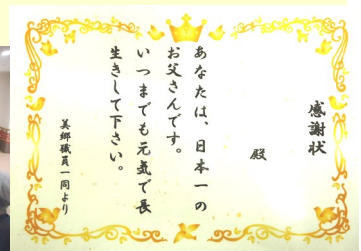 感謝状
殿
あなたは、日本一の
お父さんです。
いつまでも元気で長
生きして下さい。
美郷職員一同より